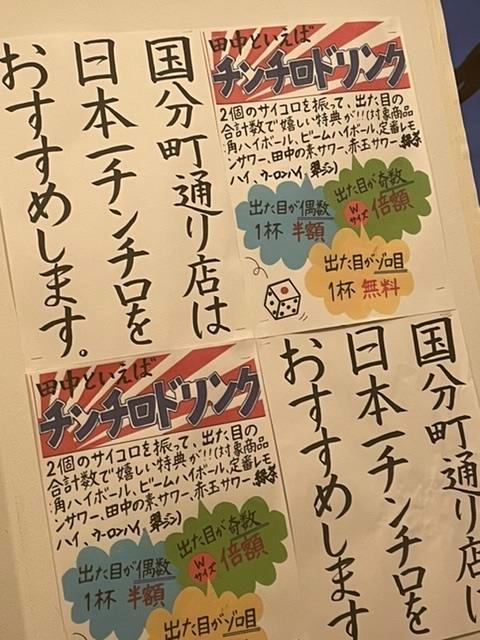 国分町通り店は
日本一チンチロを
おすすめします。
田中といえば
チンチロドリンク
2個のサイコロを振って、出た目の
合計数で嬉しい特典が!!(対象商品
:角ハイボール、ビームハイボール、定番レモ
ンサワー、田中の素サワー、赤玉サワー、緑茶
ハイ、ウーロンハイ、翠ジン)
出た目が偶数
1杯 半額
出た目が奇数
Wサイズ 倍額
出た目がゾロ目
1杯 無料
田中といえば
チンチロドリンク
2個のサイコロを振って、出た目の
合計数で嬉しい特典が!!(対象商品
:角ハイボール、ビームハイボール、定番レモ
ンサワー、田中の素サワー、赤玉サワー、緑茶
ハイ、ウーロンハイ、翠ジン)
出た目が偶数
1杯 半額
出た目が奇数
Wサイズ 倍額
出た目がゾロ目
国分町通り店は
日本一チンチロを
おすすめします